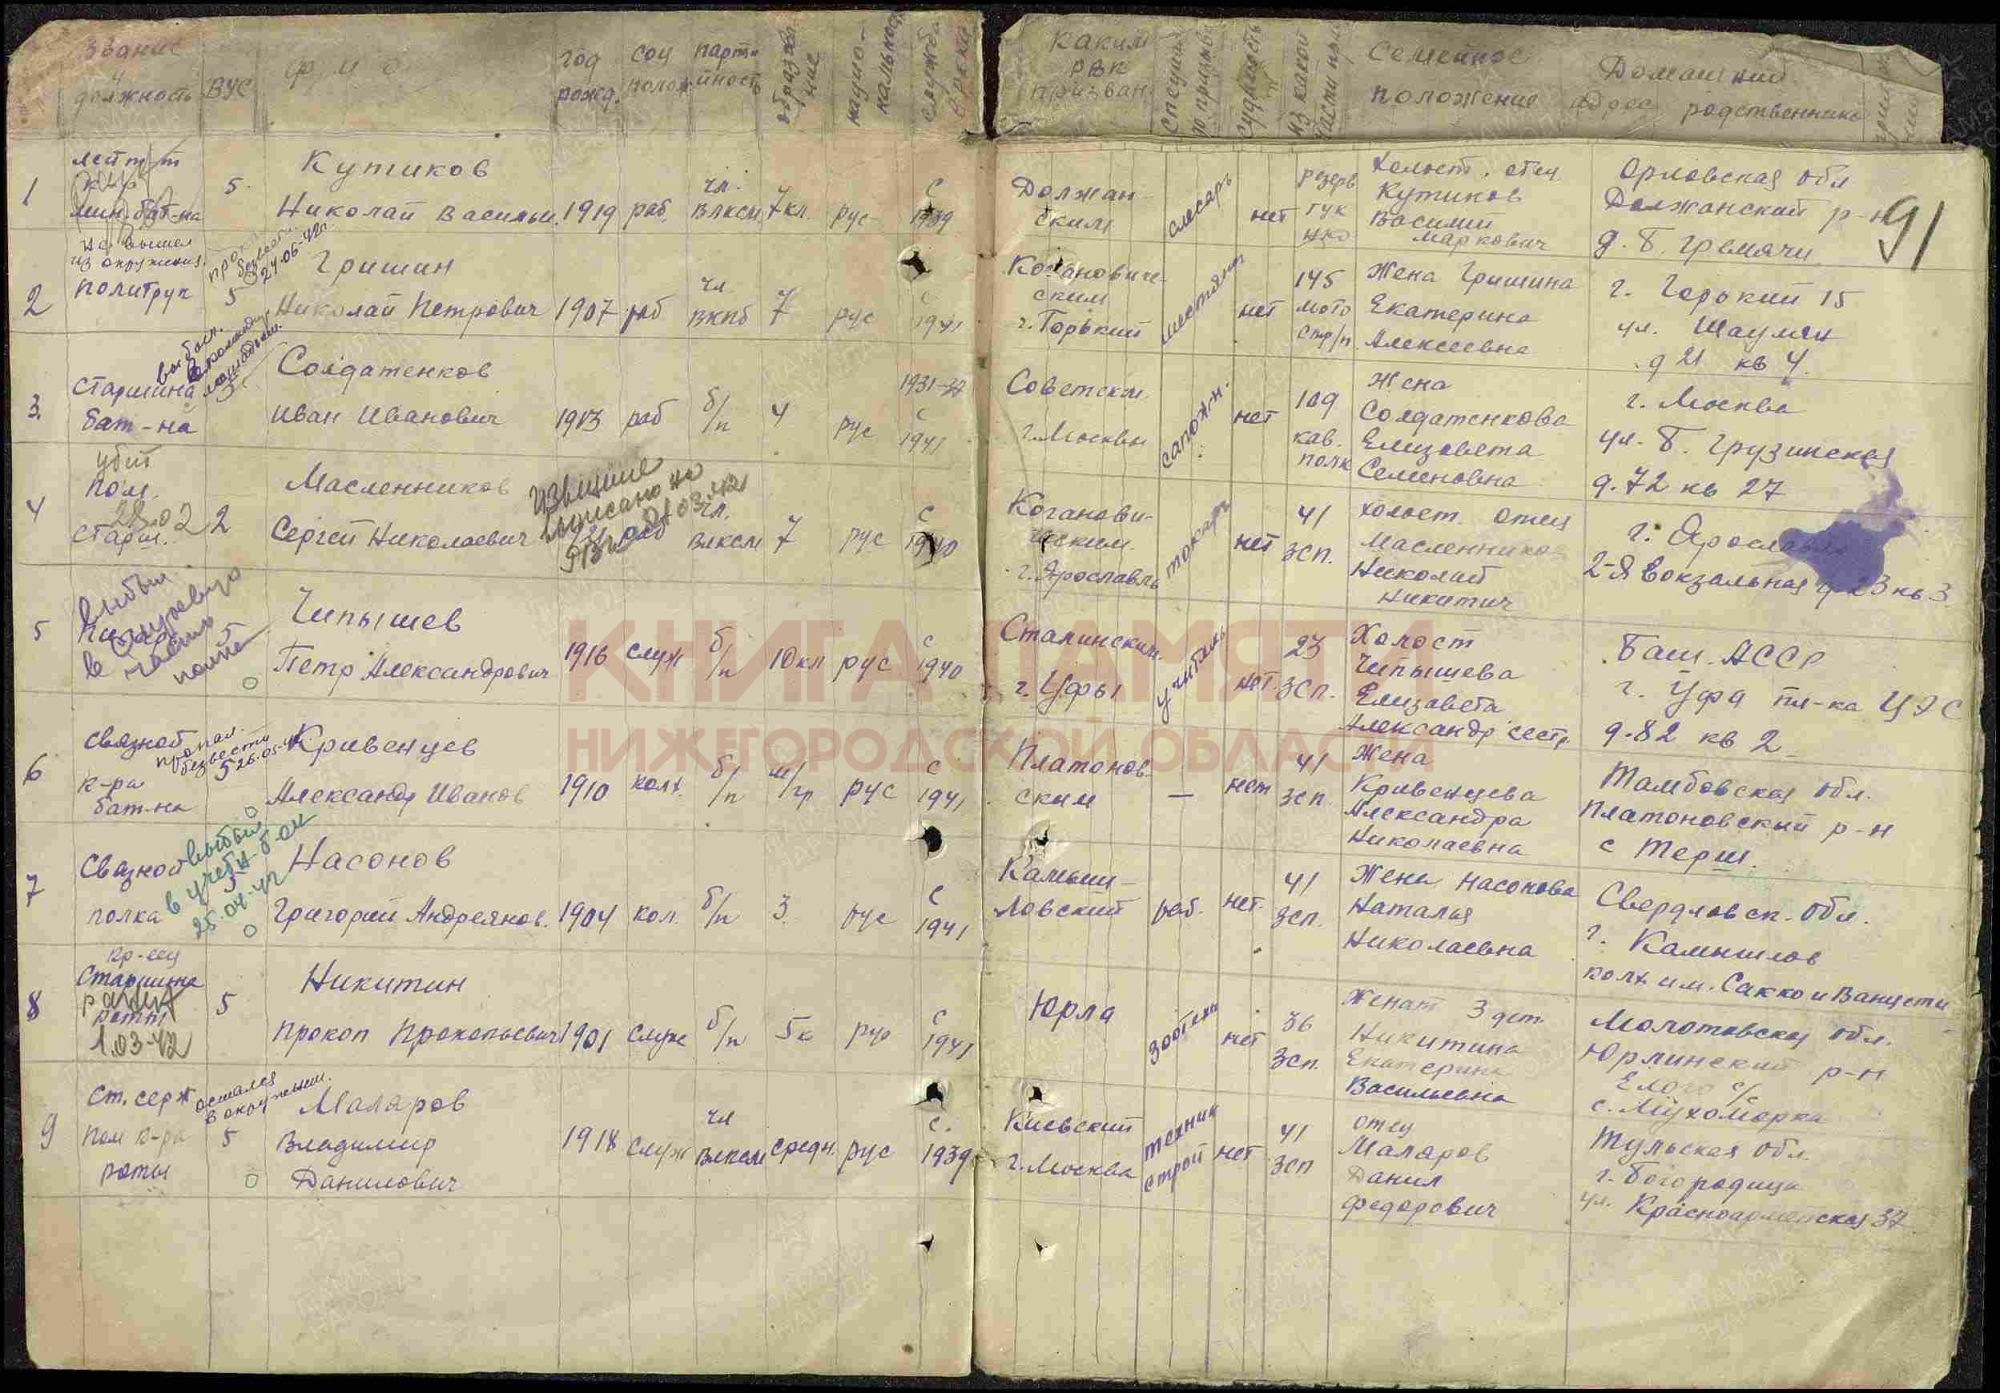 Звание и должность
ВУС
Ф И О
год рожд.
соц полож
партийность
образование
национальность
служба в РККА
каким РВК призван
судимость
из какой части приб
Семейное положение
Домашний адрес родственника
91
1
лейт-т
к-р
мин. бат-на
5
Кутиков
Николай Васильев.
1919
раб.
чл. ВЛКСМ
7 кл.
рус
с 1939
Должанским
слесарь
нет
резерв ГУК НКО
холост. отец
Кутиков
Василий
Маркович
Орловская обл
Должанский р-н
д. Б. Гремячи
2
не вышел
из окружения
политрук
пропал безвести 24.06.42г.
5
Гришин
Николай Петрович
1907
раб
чл ВКПб
7
рус
с 1941
Кагановическим
г. Горький
нет
145
мото
стр/п
Жена Гришина
Екатерина
Алексеевна
г. Горький 15
ул. Шаумян
д 21 кв 4.
3.
Старшина
бат-на
выбыл. в команду
5
Солдатенков
Иван Иванович
1913
раб
б/п
4
рус
1931-32
с 1941
Советским
г. Москвы
сапожн.
нет
109
кав.
полк
Жена
Солдатенкова
Елизовета
Семеновна
г. Москва
ул. Б. Грузинская
д. 72 кв 27
4
убит
пом.
28.02
старш.
2
Масленников
Сергей Николаевич
Извещение
выписано на
РВК 21.03.42
раб
чл. ВЛКСМ
7
рус
с 1940
Кагановическим
г. Ярославль
токарь
нет
41
ЗСП.
холост. отец
Масленников
Николай
Никитич
г. Ярославль
2-я Вокзальная д 23 кв 3
5
выбыл
в
часть
5
Чипышев
Петр Александрович
1916
служ
б/п
10 кл
рус
с 1940
Сталинским
г. Уфы
учитель
нет.
23
ЗСП.
Холост
Чипышева
Елизавета
Александр сестр.
Баш. АССР
г. Уфа пл-ка ЦЭС
д. 82 кв 2
6
Связной
к-ра
бат-на
пропал безвести
5
26.05.42
Кривенцев
Александр Иванов
1910
колх.
б/п
м/гр
рус
с 1941
Платоновским
—
нет
41
ЗСП.
Жена
Кривенцева
Александра
Николаевна
Тамбовская обл.
Платоновский р-н
с Терш.
7
Связной
полка
выбыл
в учебн. б-он
25.04.42
5
Насонов
Григорий Андреянов.
1904
кол.
б/п
3.
рус
с 1941
Камышловский
раб.
нет.
41
ЗСП.
Жена Насонова
Наталья
Николаевна
Свердловск. обл.
г. Камышлов
колх им. Сакко и Ванцети
8
кр-еец
Старшина
роты
ранен
1.03.42
5
Никитин
Прокоп Прокопьевич
1901
служ
б/п
5 к
рус
с 1941
Юрла
нет
36
ЗСП.
Женат 3 дет.
Никитина
Екатерина
Васильевна
Молотовская обл.
Юрлинский р-н
Елого с/
с. Мухоморка
9
Ст. серж
пом к-ра
роты
остался в окружении.
5
Маларов
Владимир
Данилович
1918
служ
чл ВЛКСМ
средн.
рус
с. 1939
Киевский
г. Москва
техник строй
нет
41
ЗСП
отец
Маларов
Данил
Федорович
Тульская обл.
г. Богородицк
ул. Красноармейская 37
КНИГА ПАМЯТИ
НИЖЕГОРОДСКОЙ ОБЛАСТИ